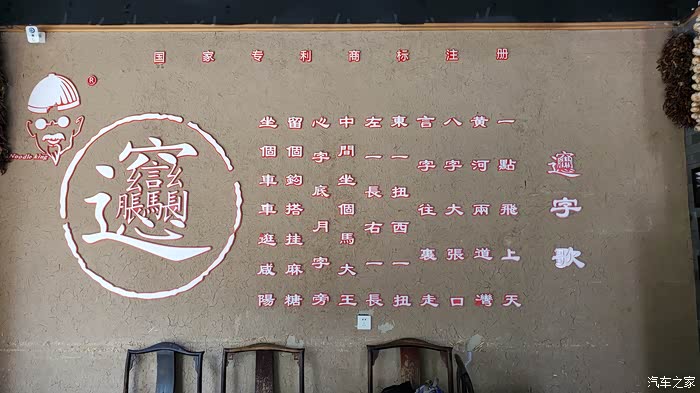 国家专利商标注册
®
Noodle king
𰻞
𰻞字歌
一點飛上天
黃河兩道灣
八字大張口
言字往裏走
東一扭西一扭
左一長右一長
中間坐個馬大王
心字底月字旁
留個鈎搭挂麻糖
坐個車車逛咸陽
汽车之家